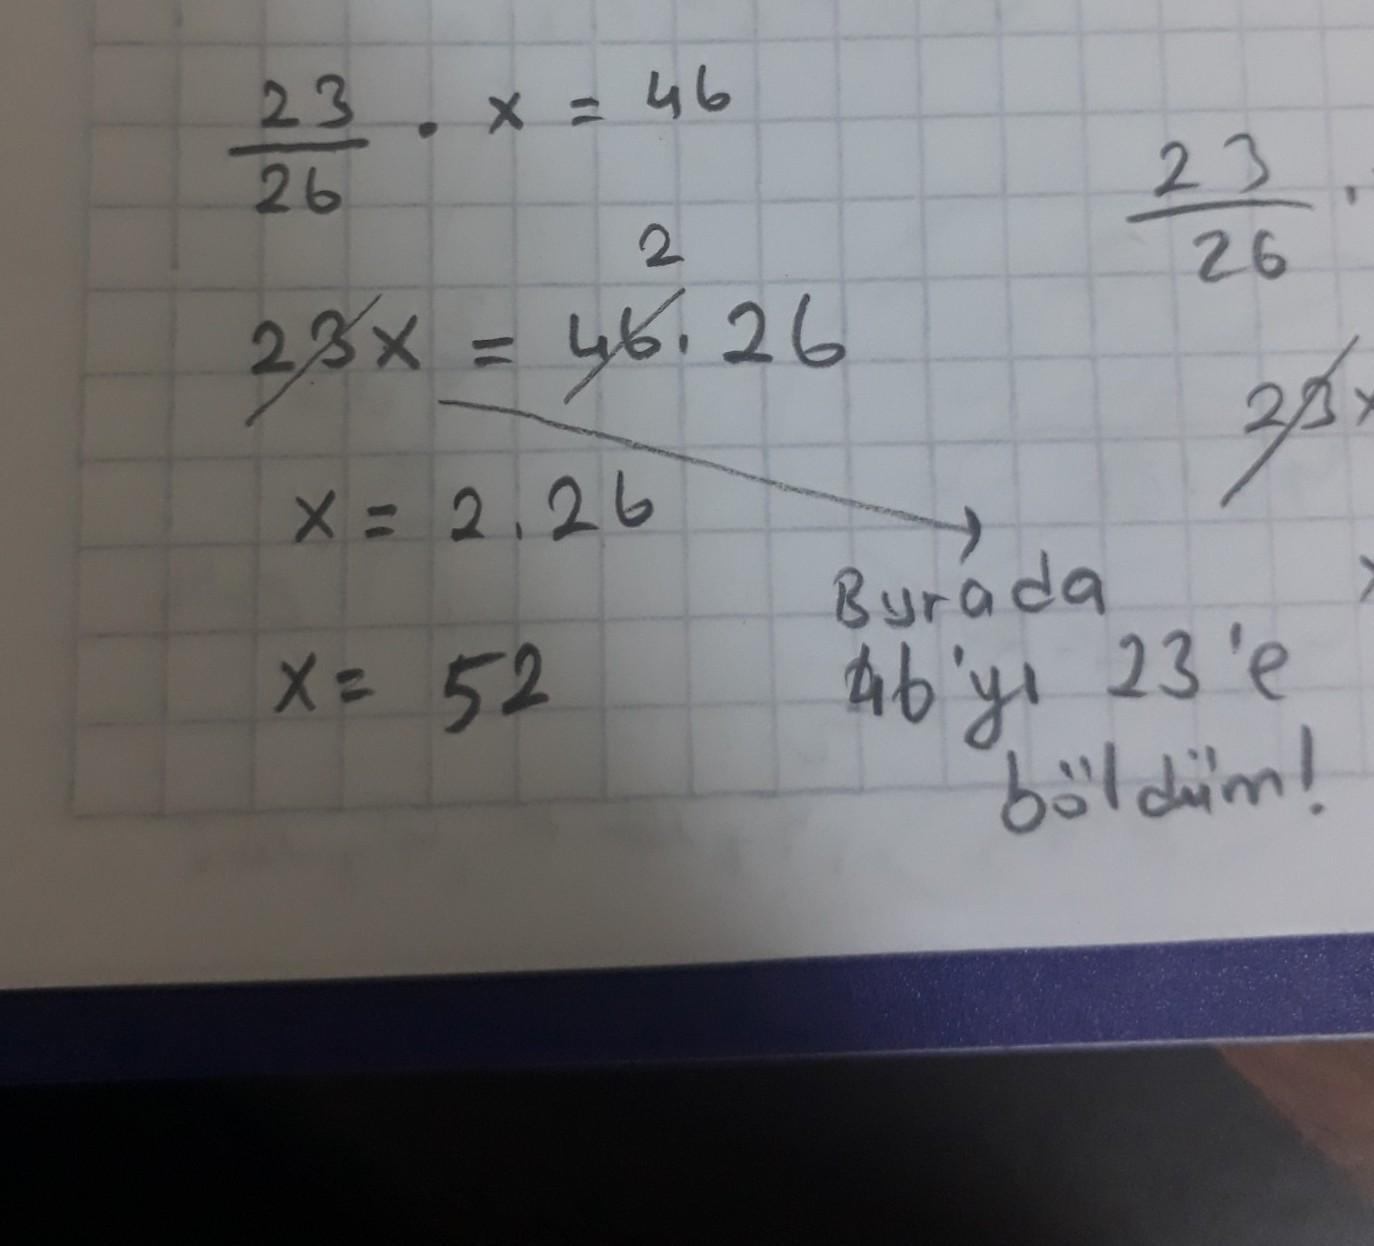 23/26 . x = 46
2
23x = 46 . 26
x = 2 . 26
x = 52
Burada
46'yı 23'e
böldüm!
23/26 .
23x